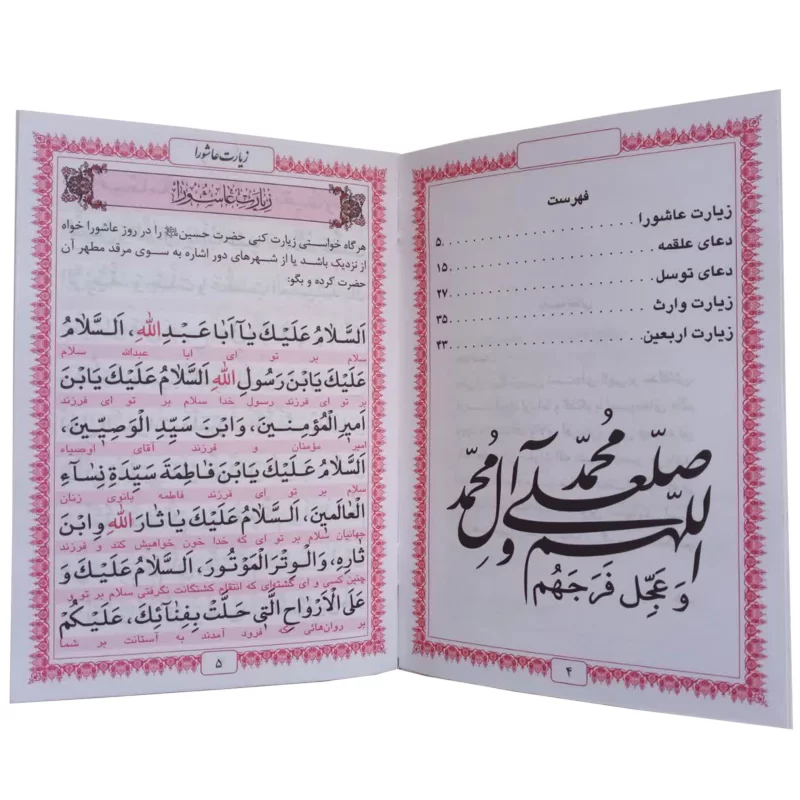 فهرست
زیارت عاشورا . . . ۵
دعای علقمه . . . ۱۵
دعای توسل . . . ۲۷
زیارت وارث . . . ۳۵
زیارت اربعین . . . ۴۳
اللّهم صلّ علی محمّد وآل محمّد
وَ عَجِّل فَرَجَهُم
۴
زیارت عاشورا
زیارت عاشورا
هرگاه خواستی زیارت کنی حضرت حسین را در روز عاشورا خواه
از نزدیک باشد یا از شهرهای دور اشاره به سوی مرقد مطهر آن
حضرت کرده و بگو:
اَلسَّلامُ عَلَيْكَ يٰآ اَبا عَبْدِ اللهِ، اَلسَّلامُ
سلام بر تو ای ابا عبدالله سلام
عَلَيْكَ يَابْنَ رَسُولِ اللهِ اَلسَّلامُ عَلَيْكَ يَابْنَ
بر تو ای فرزند رسول خدا سلام بر تو ای فرزند
اَميرِ الْمُؤْمِنينَ، وَابْنَ سَيِّدِ الْوَصِيّينَ،
امیر مؤمنان و فرزند آقای اوصیاء
اَلسَّلامُ عَلَيْكَ يَابْنَ فاطِمَةَ سَيِّدَةِ نِسآءِ
سلام بر تو ای فرزند فاطمه بانوی زنان
الْعالَمينَ، اَلسَّلامُ عَلَيْكَ يا ثارَ اللهِ وَابْنَ
جهانیان سلام بر تو ای که خدا خون خواهیش کند و فرزند
ثارِهِ، وَالْوِتْرَ الْمَوْتُورَ، اَلسَّلامُ عَلَيْكَ وَ
چنین کسی و ای گشته‌ای که انتقام کشتگانت نگرفتی سلام بر تو و
عَلَى الْاَرْواحِ الَّتى حَلَّتْ بِفِنآئِكَ، عَلَيْكُمْ
بر روان‌هائی که فرود آمدند به آستانت بر شما
۵